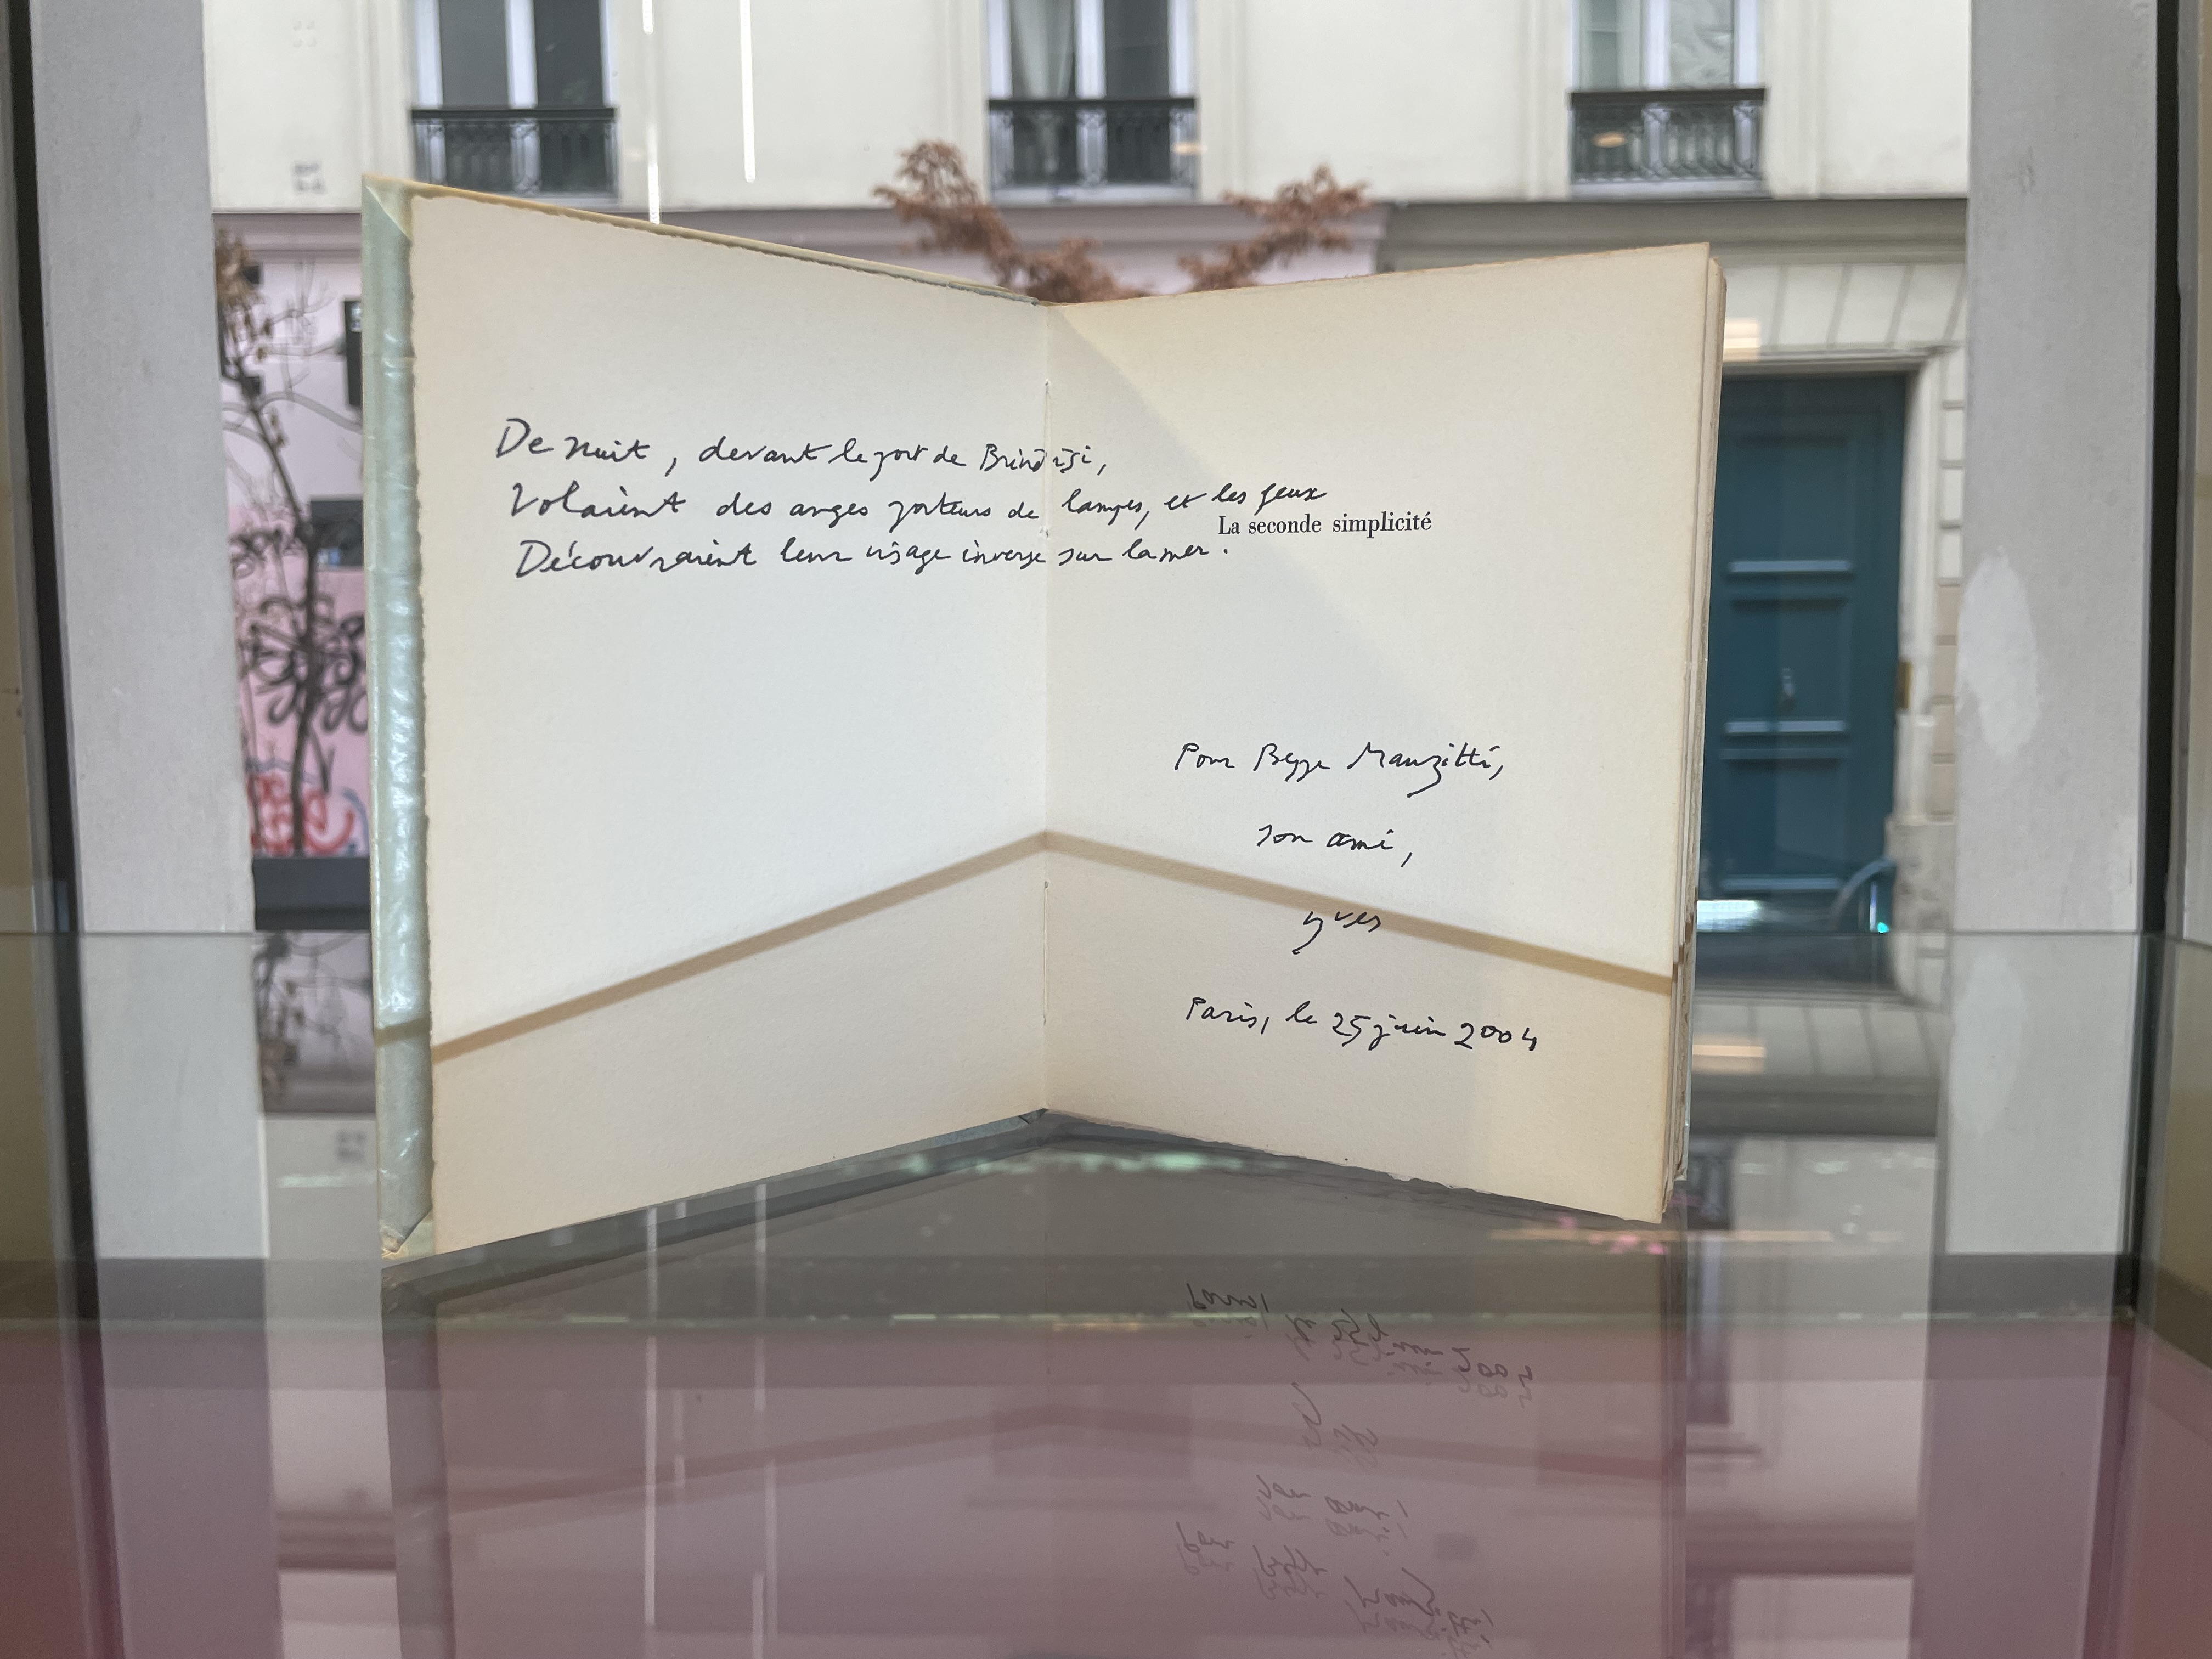 De nuit, devant le port de Brindisi,
Volaient des anges porteurs de lampes, et les feux
Découvraient leur visage inverse sur la mer.
La seconde simplicité
Pour Beppe Manzitti,
son ami,
yves
Paris, le 25 juin 2004